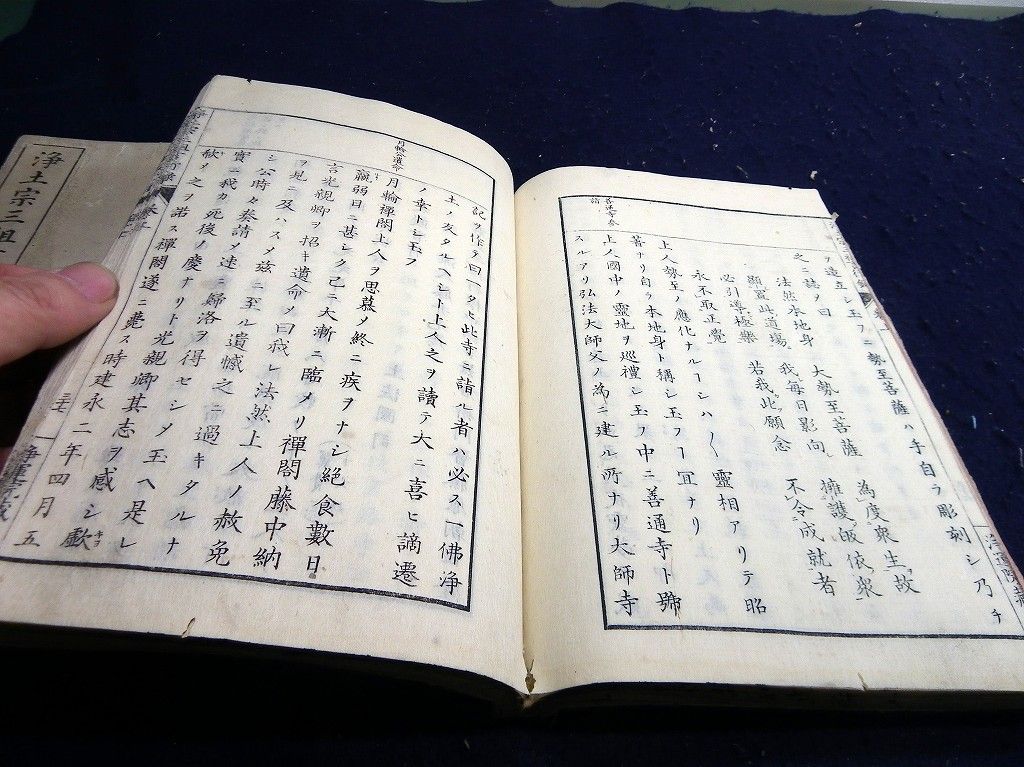 ヲ造立シ玉フニ勢至菩薩ハ手自ラ彫刻シ乃チ
之ニ誌ヲ曰
法然本地身 大勢至菩薩 為度衆生故
顕置此道場 我毎日影向 擁護帰依衆
必引導極樂 若我此願念 不令成就者
永不取正覺
上人勢至ノ應化ナル
靈相アリテ昭
著ナリ自ラ本地身ト稱シ玉フ
冝ナリ
上人國中ノ靈地ヲ巡禮シ玉フ中ニ善通寺ト號
スルアリ弘法大師父ノ為ニ建ル所ナリ大師寺
善通寺参
詣
記ヲ作テ曰一タヒ此寺ニ詣ル者ハ必ス一佛浄
土ノ友タルヘシト上人之ヲ讀テ大ニ喜ヒ謫遷
ノ幸トシ玉フ
月輪公遺命
月輪禪閤上人ヲ思慕メ終ニ疾ヲナシ絶食數日
羸弱日ニ甚シク已ニ大漸ニ臨メリ禪閤藤中納
言光親卿ヲ招キ遺命メ曰我レ法然上人ノ赦免
ヲ見ニ及ハスメ兹ニ至ル遺憾之ニ過キタルナ
シ公時々奏請メ速ニ歸洛ヲ得セシメ玉ヘ是レ
實ニ我カ死後ノ慶ナリト光親卿其志ヲ感シ歔
キヨ
欷メ之ヲ諾ス禪閤遂ニ薨ス時建永二年四月五
浄土宗三祖